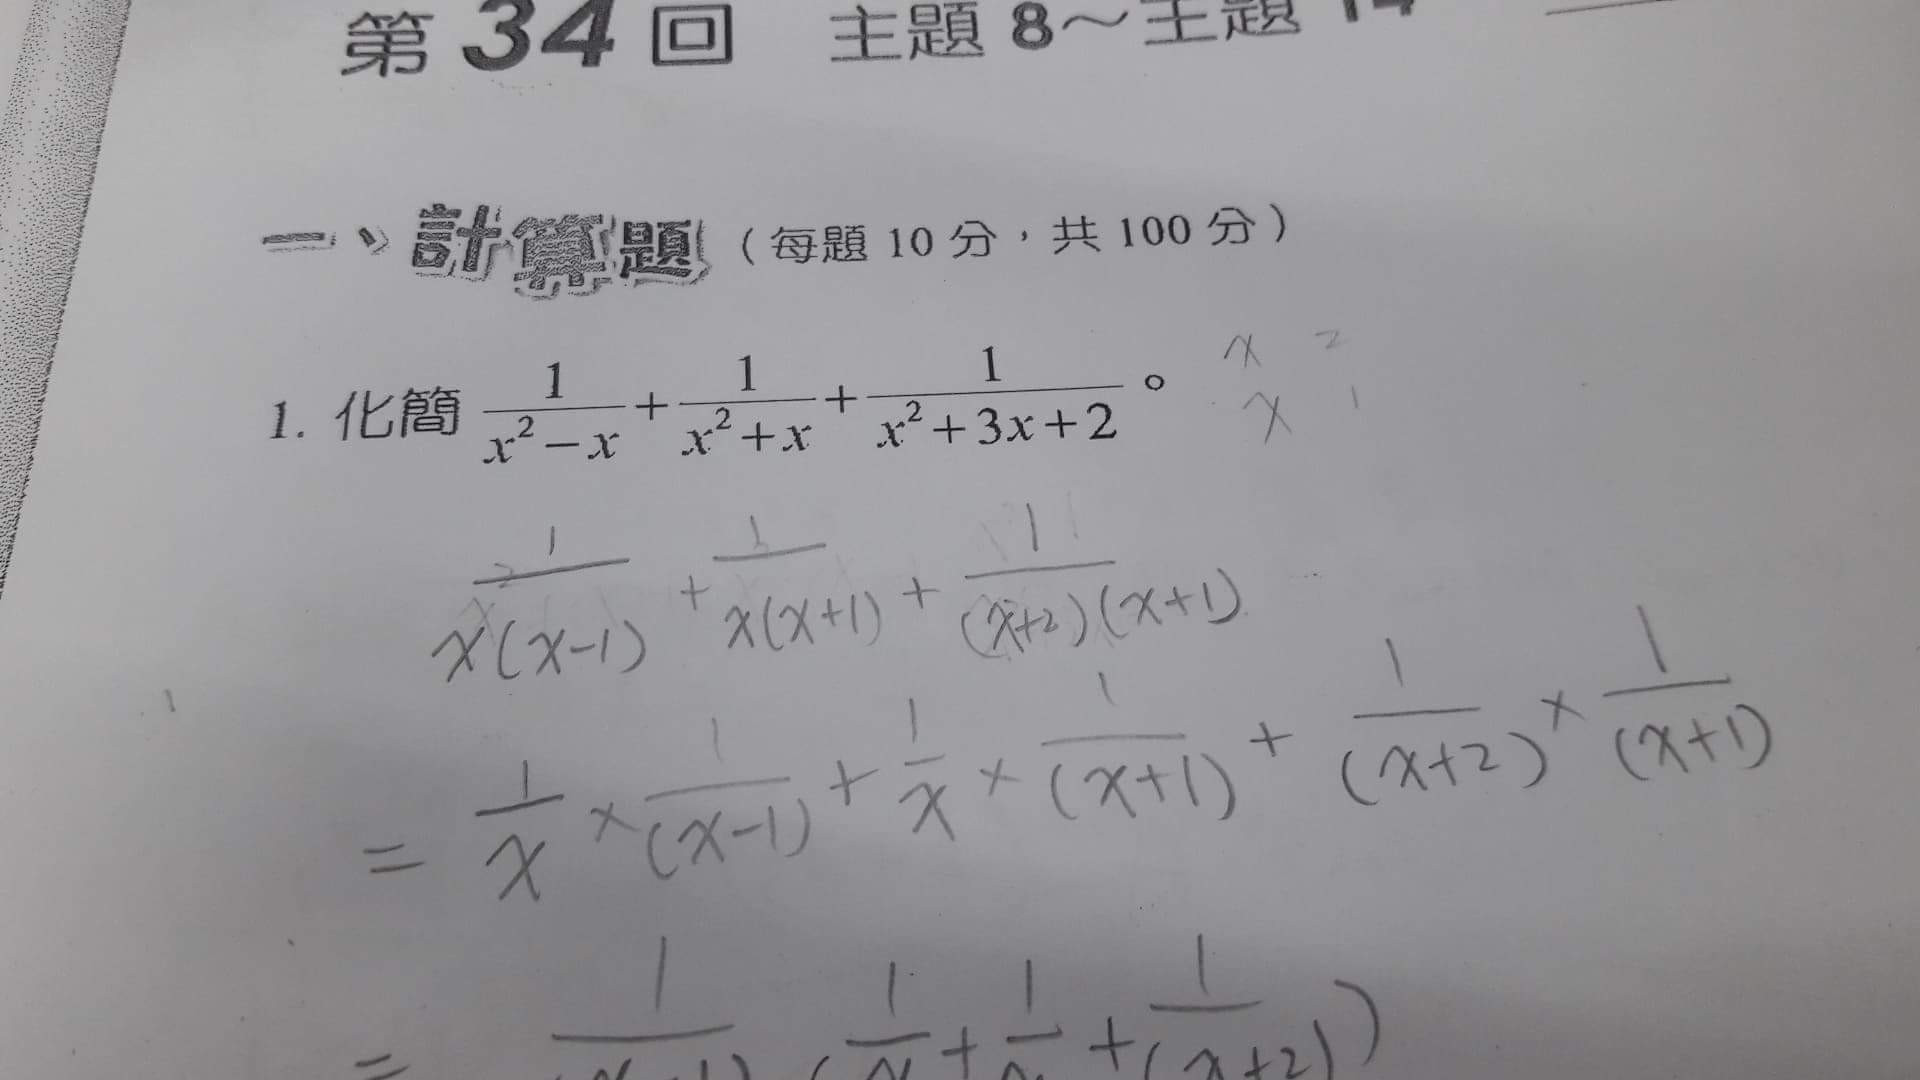 第 34 回 主題 8～主題 14
一、計算題（每題 10 分，共 100 分）
1. 化簡 1/(x²−x) + 1/(x²+x) + 1/(x²+3x+2)。
x 2
x 1
1/(x(x-1)) + 1/(x(x+1)) + 1/((x+2)(x+1))
= 1/x × 1/(x-1) + 1/x × 1/(x+1) + 1/(x+2) × 1/(x+1)
= 1/ (1/x + 1/x + 1/(x+2))